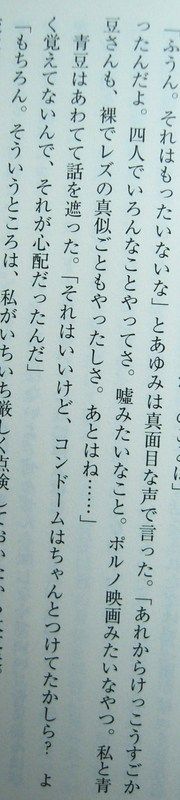 「ふうん。それはもったいないな」とあゆみは真面目な声で言った。「あれからけっこうすごか
ったんだよ。四人でいろんなことやってさ。嘘みたいなこと。ポルノ映画みたいなやつ。私と青
豆さんも、裸でレズの真似ごともやったしさ。あとはね……」
青豆はあわてて話を遮った。「それはいいけど、コンドームはちゃんとつけてたかしら？　よ
く覚えてないんで、それが心配だったんだ」
「もちろん。そういうところは、私がいちいち厳しく点検しておいたから